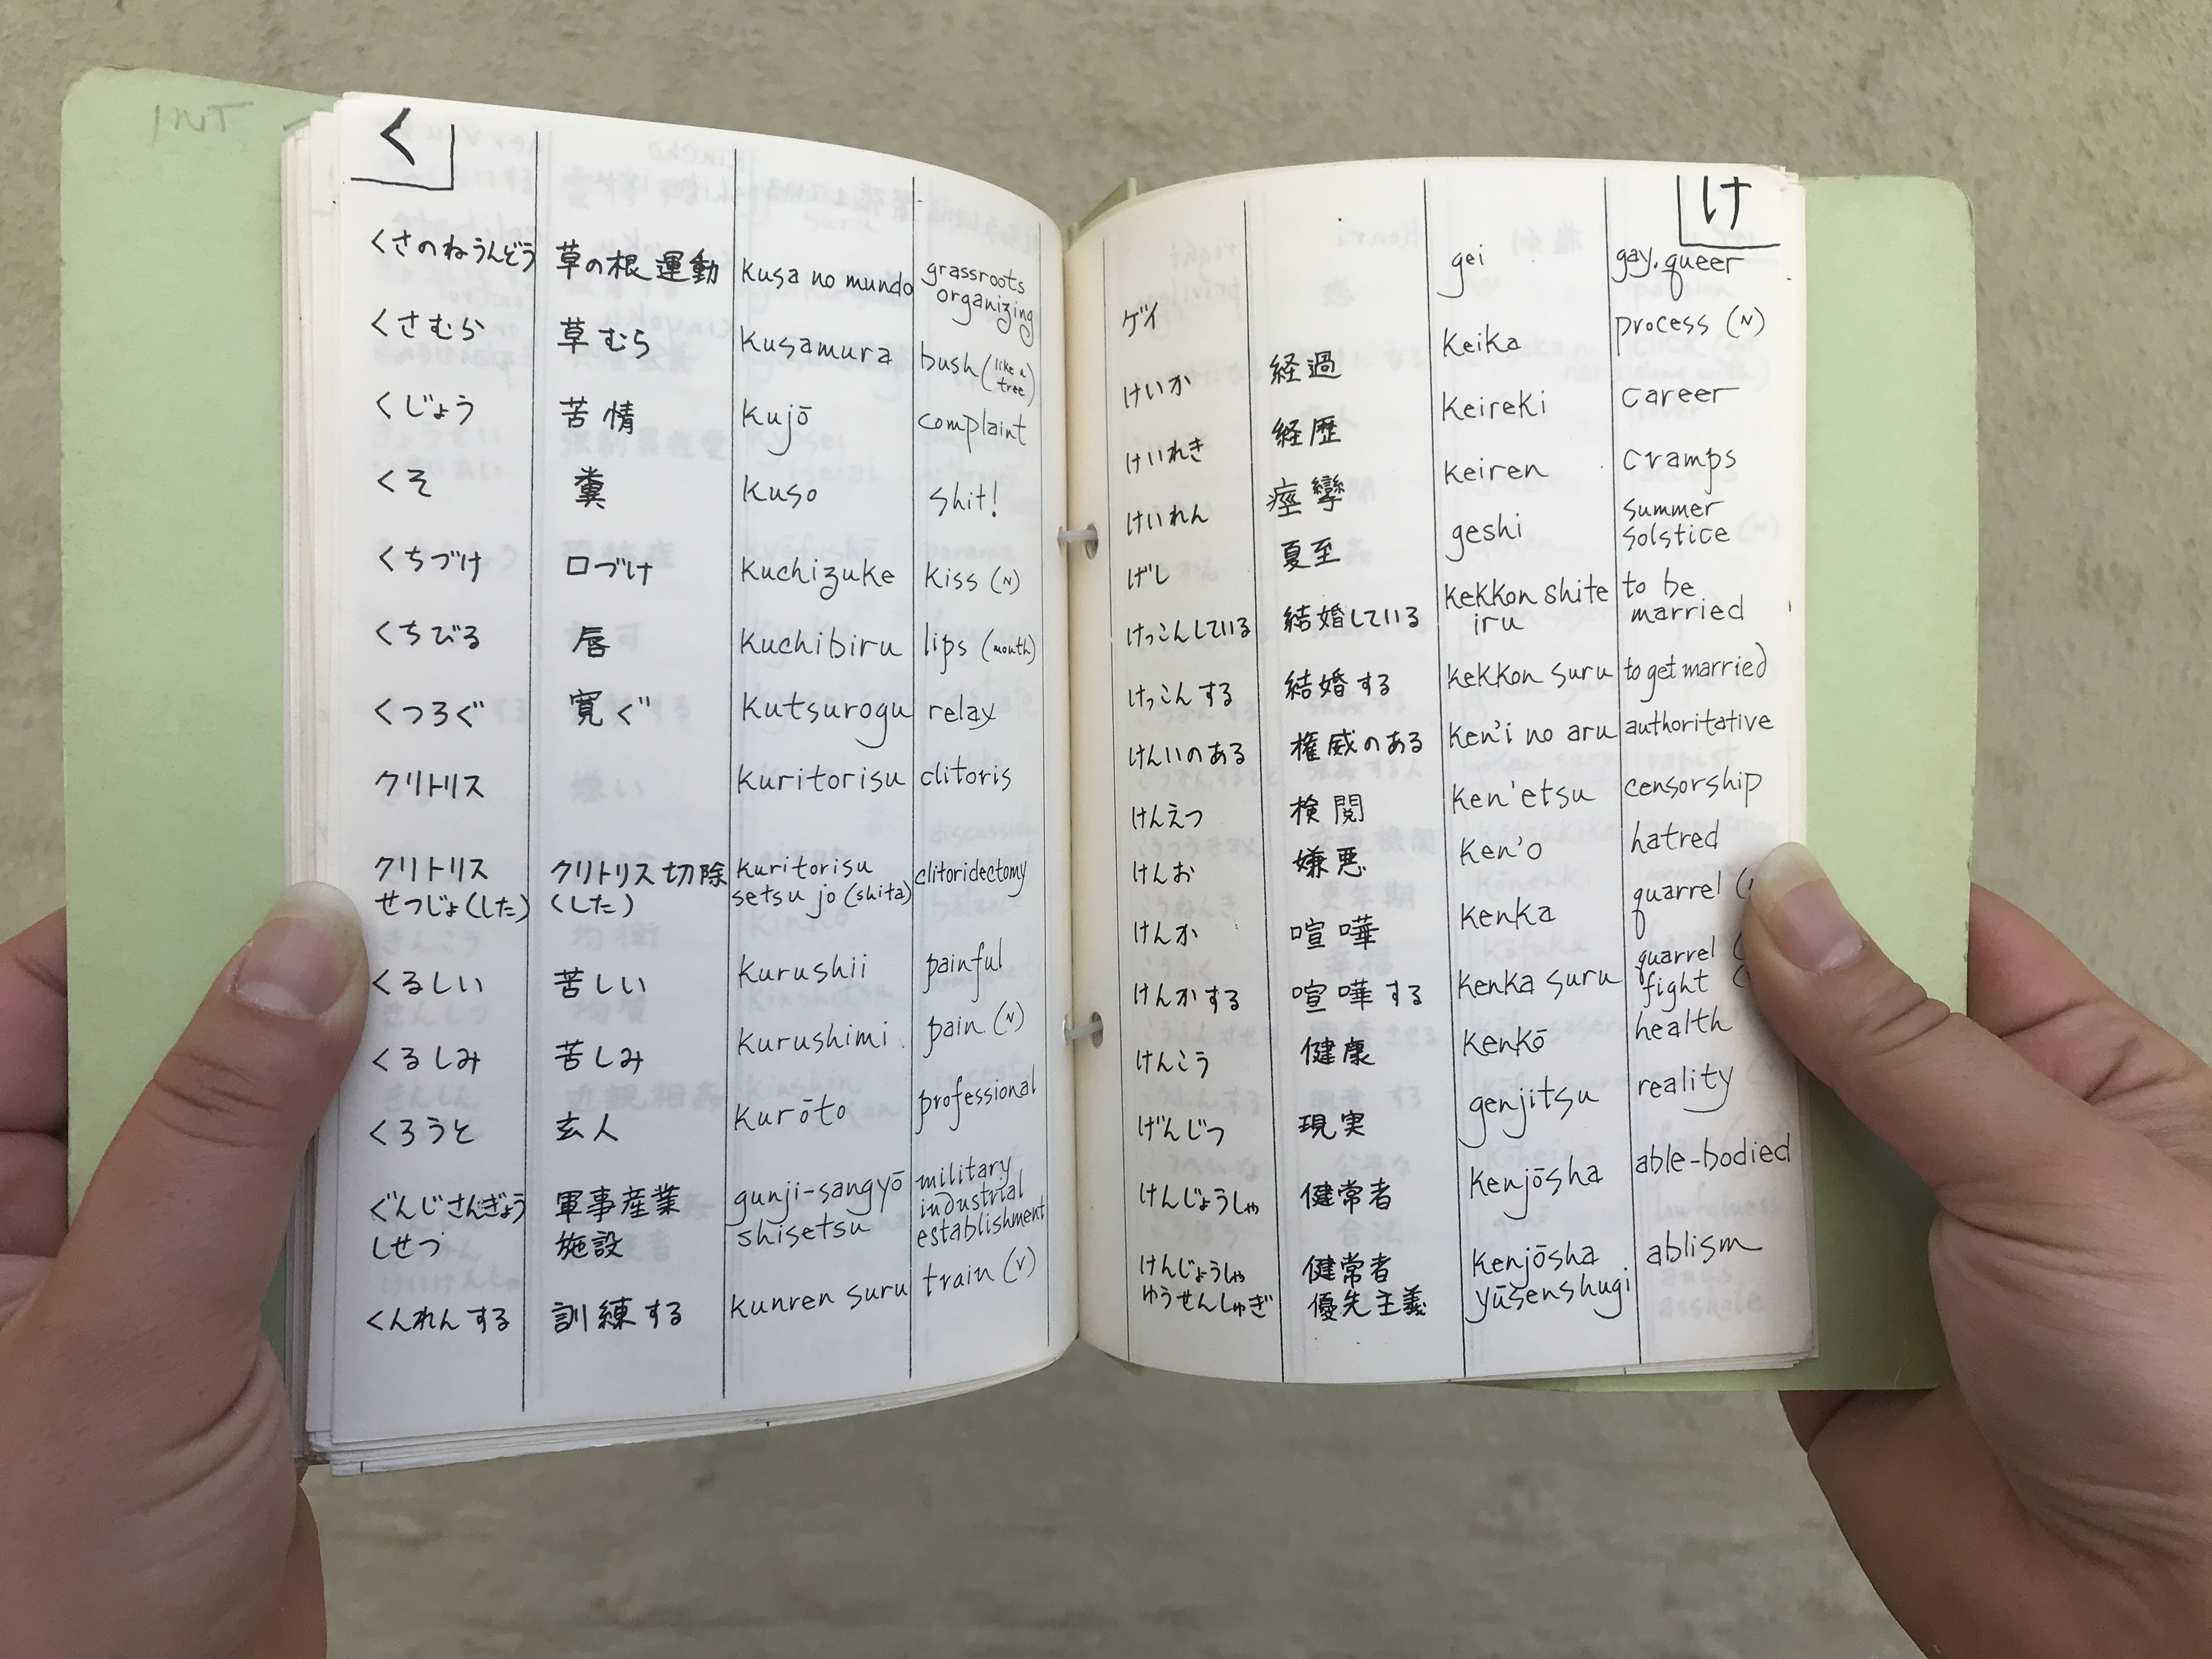 く
くさのねうんどう 草の根運動 kusa no mundo grassroots organizing
くさむら 草むら kusamura bush (like a tree)
くじょう 苦情 kujō complaint
くそ 糞 kuso shit!
くちづけ 口づけ kuchizuke kiss (N)
くちびる 唇 kuchibiru lips (mouth)
くつろぐ 寛ぐ kutsurogu relay
クリトリス kuritorisu clitoris
クリトリス クリトリス切除 kuritorisu clitoridectomy
せつじょ(した) (した) setsu jo (shita)
くるしい 苦しい kurushii painful
くるしみ 苦しみ kurushimi pain (N)
くろうと 玄人 kurōto professional
ぐんじさんぎょう 軍事産業 gunji-sangyō military industrial
しせつ 施設 shisetsu establishment
くんれんする 訓練する kunren suru train (V)
け
ゲイ gei gay. queer
けいか 経過 keika process (N)
けいれき 経歴 keireki career
けいれん 痙攣 keiren cramps
げし 夏至 geshi summer solstice
けっこんしている 結婚している kekkon shite iru to be married
けっこんする 結婚する kekkon suru to get married
けんいのある 権威のある ken'i no aru authoritative
けんえつ 検閲 ken'etsu censorship
けんお 嫌悪 ken'o hatred
けんか 喧嘩 kenka quarrel
けんかする 喧嘩する kenka suru quarrel fight
けんこう 健康 kenkō health
げんじつ 現実 genjitsu reality
けんじょうしゃ 健常者 kenjōsha able-bodied
けんじょうしゃ 健常者 kenjōsha ablism
ゆうせんしゅぎ 優先主義 yūsenshugi